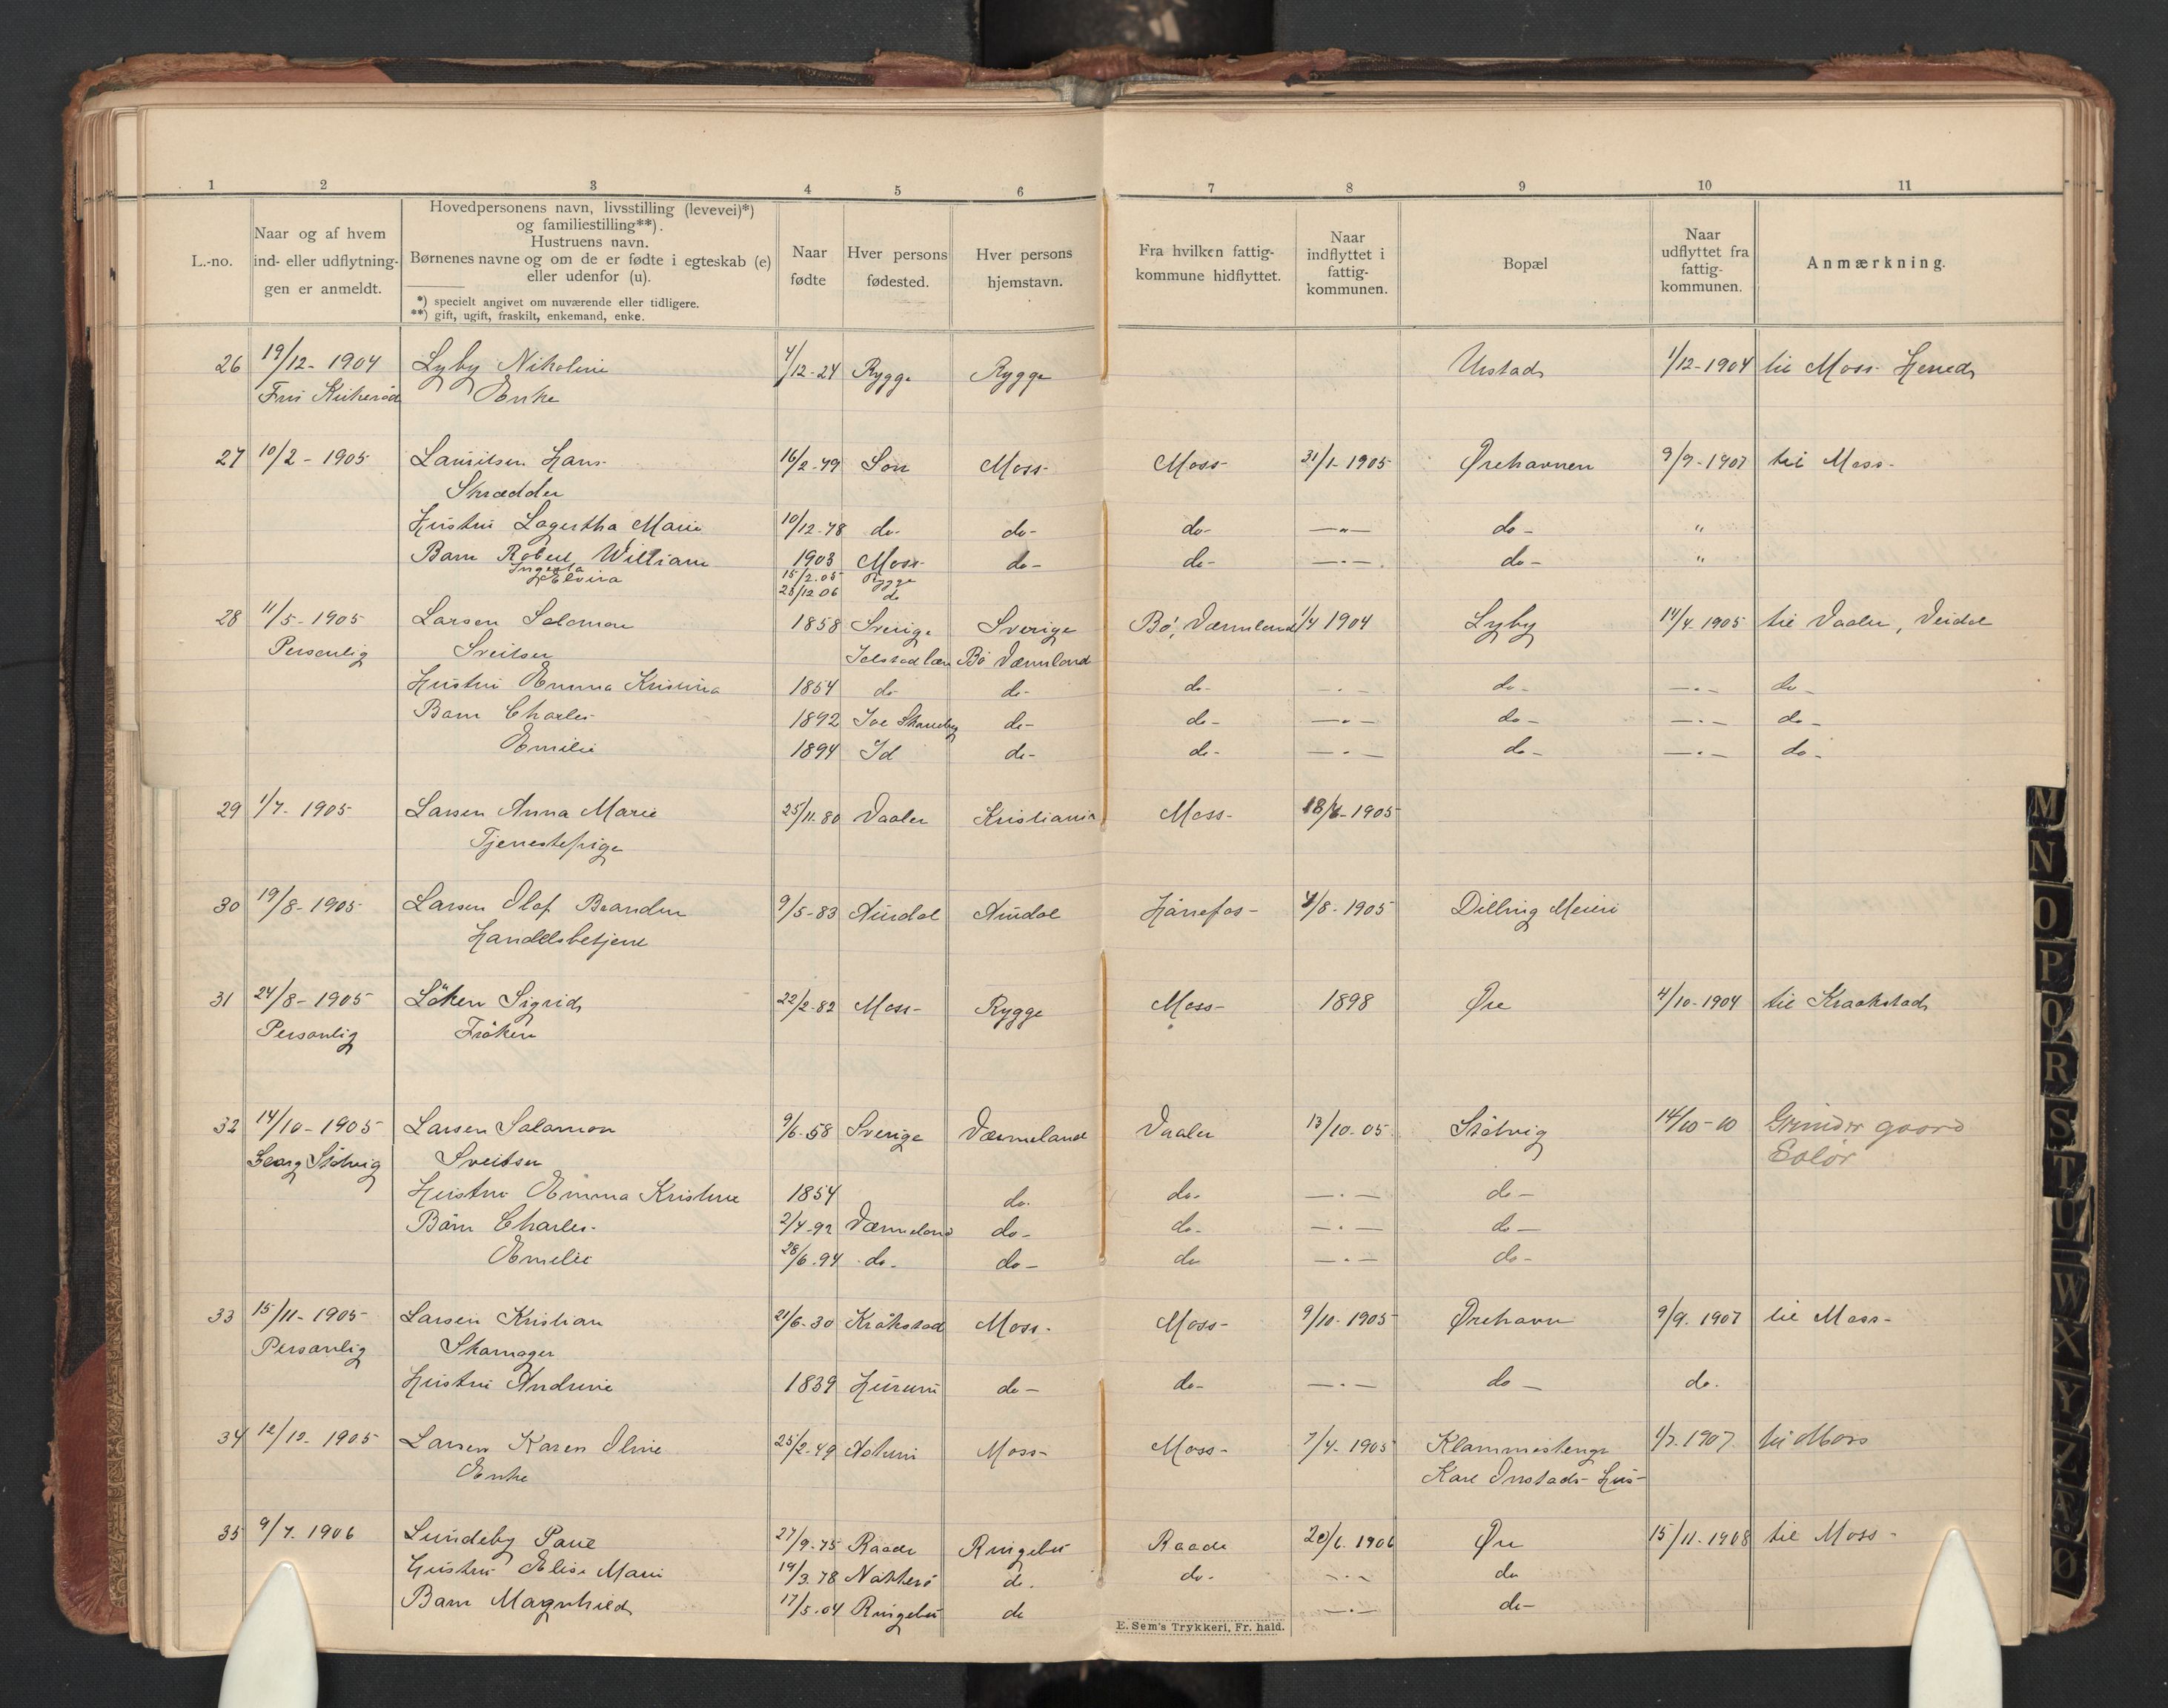 1 2 3 4 5 6 7 8 9 10 11
L.-no.
Naar og af hvem
ind- eller udflytnin-
gen er anmeldt.
Hovedpersonens navn, livsstilling (levevei)*)
og familiestilling**).
Hustruens navn.
Børnenes navne og om de er fødte i egteskab (e)
eller udenfor (u).
*) specielt angivet om nuværende eller tidligere.
**) gift, ugift, fraskilt, enkemand, enke.
Naar
fødte
Hver persons
fødested.
Hver persons
hjemstavn.
Fra hvilken fattig-
kommune hidflyttet.
Naar
indflyttet i
fattig-
kommunen.
Bopæl
Naar
udflyttet fra
fattig-
kommunen.
Anmærkning.
26 19/12- 1904 Lyby Nikoline 4/12-24 Rygge Rygge Urstad 1/12-1904 til Moss Herred
Enke
27 10/2 - 1905 Lauritsen Hans 16/2-79 Son Moss- Moss- 31/1-1905 Ørehavnen 9/9-1907 til Moss-
Skrædder
Hustru Lagertha Marie 10/12-78 do- do- do- —"— do- "
Barn Robert William 1903 Moss- do- do- —"— do- "
Ingerta 15/2.05 Rygge
Elvira 25/12.06 do
28 11/5-1905 Larsen Salomon 1858 Sverige Sverige Bö, Værmland 1/4 1904 Lyby 14/4-1905 til Vaaler,
Personlig Sveitser Bö Værmland
Hustru Emma Kristina 1854 do do- do- —"— do- —"— do-
Barn Charles 1892 do- do- —"— do- —"— do-
Emilie 1894 Id do- do- —"— do- —"— do-
29 1/7-1905 Larsen Anna Marie 25/11-80 Vaaler Kristiania Moss- 18/6-1905
Tjenestepige
30 19/8-1905 Larsen Olaf 9/5-83 Hånefos- 4/8-1905 Dilling Meieri
Handelsbetjent
31 24/8-1905 Löken Sigrid 22/2-82 Moss- Rygge Moss- 1898 Øre 4/10-1904 til Kraakstad
Personlig Fröken
32 14/10-1905 Larsen Salamon 9/6-58 Sverige Værmeland Vaaler 13/10-05 Stötvig 14/10-10 Grinder gaard
Georg Stötvig Sveitser Solör
Hustru Emma Kristine 1854 do- do- —"— do-
Börn Charles- 2/4-92 Værmeland do- do- —"— do-
Emilie 28/6.94 do- do- do —"— do-
33 15/11-1905 Larsen Kristian 21/6-30 Kråkstad Moss- Moss- 9/10-1905 Ørehavn 9/9.1907 til Moss-
Personlig Skomager
Hustru Andrine 1839 Hurum do- do- —"— do- do.
34 12/12-1905 Larsen Karen Oline 25/2-49 Askim Moss- Moss- 7/4-1905 1/7.1907 til Moss
Enke
35 9/7.1906 Lundeby Paul 27/9-75 Raade Ringebu Raade 20/6.1906 Øre 15/11-1908 til Moss-
Hustru Elise Marie 19/3.78 Nötterö do. do- —"— do
Barn Magnhild 17/5.04 Ringebu do —"— do-
E. Sem's Trykkeri, Fr. hald.
M
N
O
P
Q
R
S
T
U
W
X
Y
Z
Æ
Ø